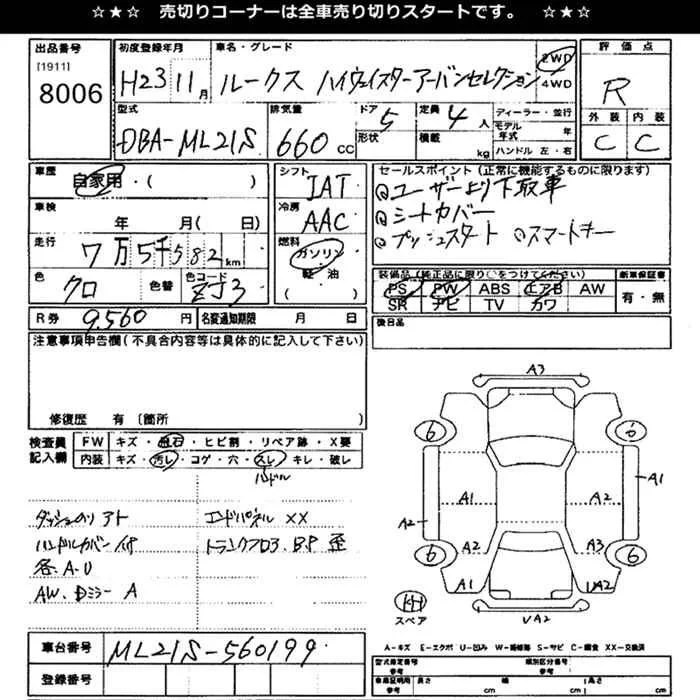 ☆ ★ ☆ 売切りコーナーは全車売り切りスタートです。 ☆ ★ ☆
出品番号
[1911]
8006
初度登録年月
H23 11月
車名・グレード
ルークス ハイウェイスターアーバンセレクション
2WD
4WD
評価点
R
外装 内装
C C
型式
DBA-ML21S
排気量
660 cc
ドア
5
形状
定員
4人
積載
kg
ディーラー・並行
モデル年式 年
ハンドル 左・右
車歴
自家用・( )
車検
年 月( 日)
走行
7万5千582km
色
クロ
色替
色コード
ZJ3
シフト
IAT
冷房
AAC
燃料
ガソリン
軽・油
( )
セールスポイント(正常に機能するものに限ります)
ユーザーより下取車
シートカバー
プッシュスタート スマートキー
装備品(純正品に限り○をつけてください)
PS PW ABS エアB AW
SR ナビ TV カワ
新車保証書
有・無
後日品
R券 9,560円
名変通知期限 月 日
注意事項申告欄(不具合内容等は具体的に記入して下さい)
修復歴 有〔箇所 〕
検査員記入欄
FW キズ・飛石・ヒビ割・リペア跡・X要
内装 キズ・汚レ・コゲ・穴・スレ・キレ・破レ
ハンドル
ダッシュのリアト
エンドパネル XX
ハンドルカバー
トランクフロア、B.P 歪
各、A・U
AW、Dミラー A
A3
6 6
A1 A2 A1
A2 A2 A3
6 6
A1 UA2
スペア
UA2
A-キズ E-エクボ U-凹み W-補修跡 S-サビ C-腐食 XX-交換済
車台番号
ML21S-560199
登録番号
型式指定番号
参考
類別区分番号
参考
車庫証明用
参考
長さ cm
幅 cm
高さ cm